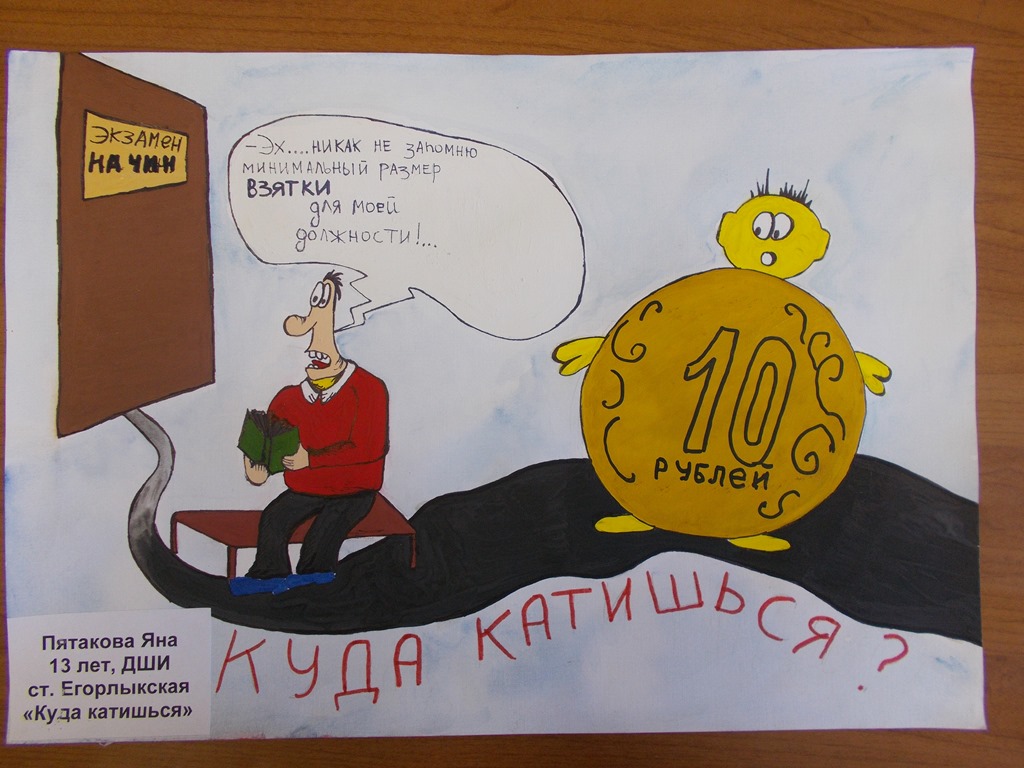 ЭКЗАМЕН
НА ЧИН
-Эх....НИКАК НЕ ЗАПОМНЮ
МИНИМАЛЬНЫЙ РАЗМЕР
ВЗЯТКИ
ДЛЯ МОЕЙ
ДОЛЖНОСТИ!...
10
РУБЛЕЙ
КУДА КАТИШЬСЯ?
Пятакова Яна
13 лет, ДШИ
ст. Егорлыкская
«Куда катишься»